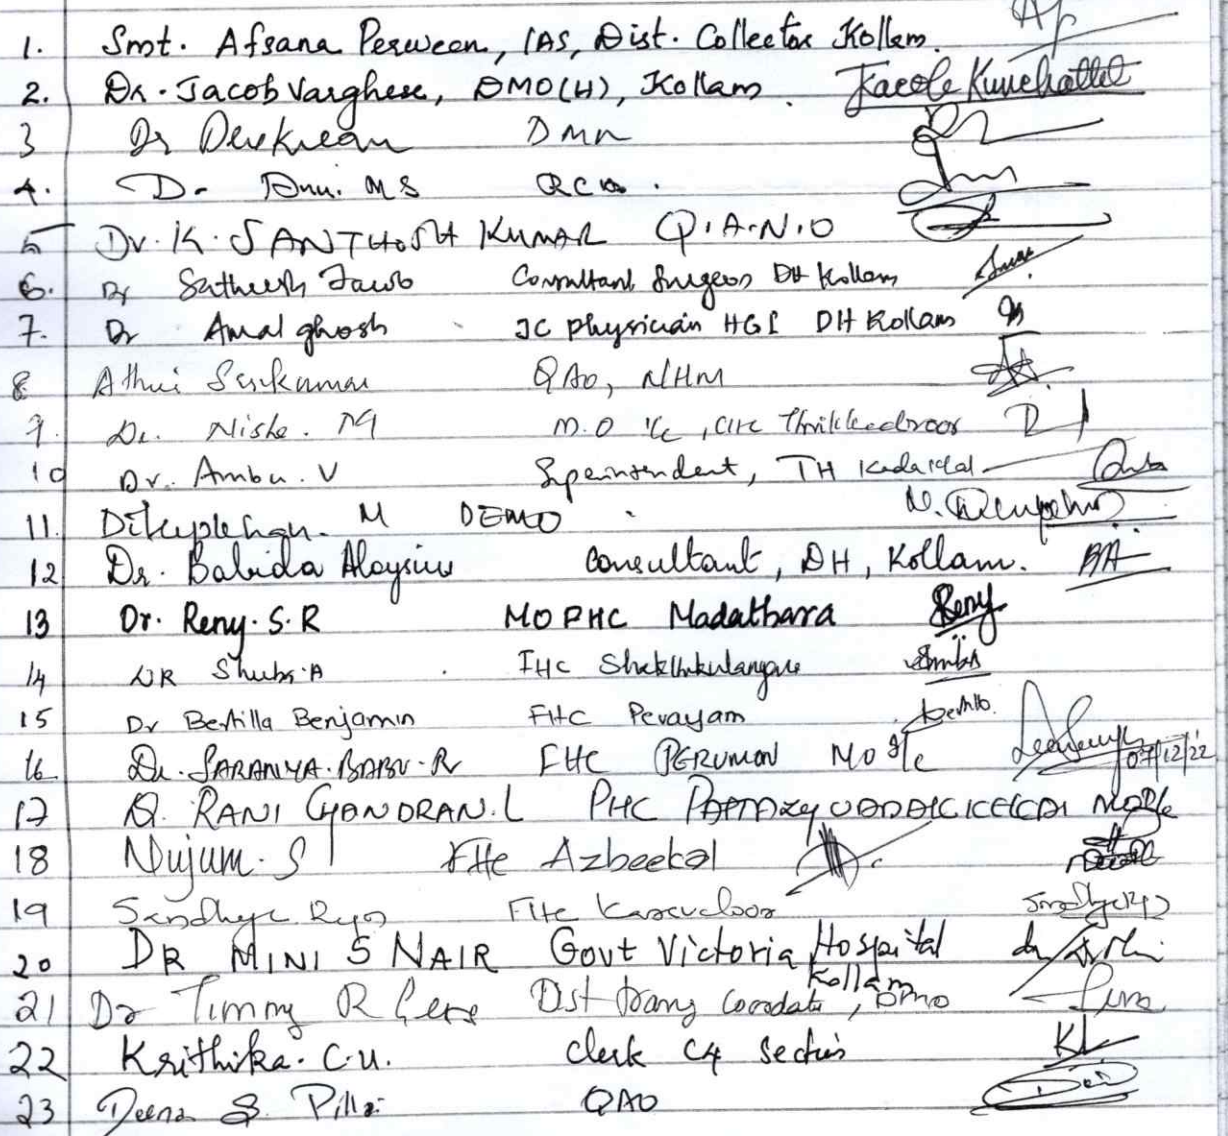 1. Smt. Afsana Perween, IAS, Dist. Collector Kollam.
2. Dr. Jacob Varghese, DMO(H), Kollam.
3 Dr Devkiran DMN
4. Dr Anu. M S RCH.
5 Dr. K. SANTHOSH KUMAR Q.A.N.O
6. Dr Satheesh Jacob Consultant Surgeon DH Kollam
7. Dr Amal ghosh JC physician HGI DH Kollam
8 Athui Sasikumar QAO, NHM
9. Dr. Nisha. M.O I/c, CHC Thrikkadavoor
10 Dr. Ambu. V Superintendent, TH Kadakkal
11. M DEMO
12 Dr. Babida Aloysius Consultant, DH, Kollam. BA
13 Dr. Reny. S. R MO PHC Madathara Reny
14 DR Shubs. A FHC Shakthikulangara
15 Dr Bertilla Benjamin FHC Perayam
16 Dr. SARANYA. BABU. R FHC PERUMON MO I/c 07/12/22
17 Dr. RANI CHANDRAN. L PHC MO I/c
18 Nujum. S FHC Azheekal
19 Sandhya FHC Karavaloor
20 DR MINI S NAIR Govt Victoria Hospital
Kollam
21 Dr Timmy R Dst trang Coordate, DMO
22 Krithika. C. U. Clerk C4 Section
23 Deena S. Pillai QAO